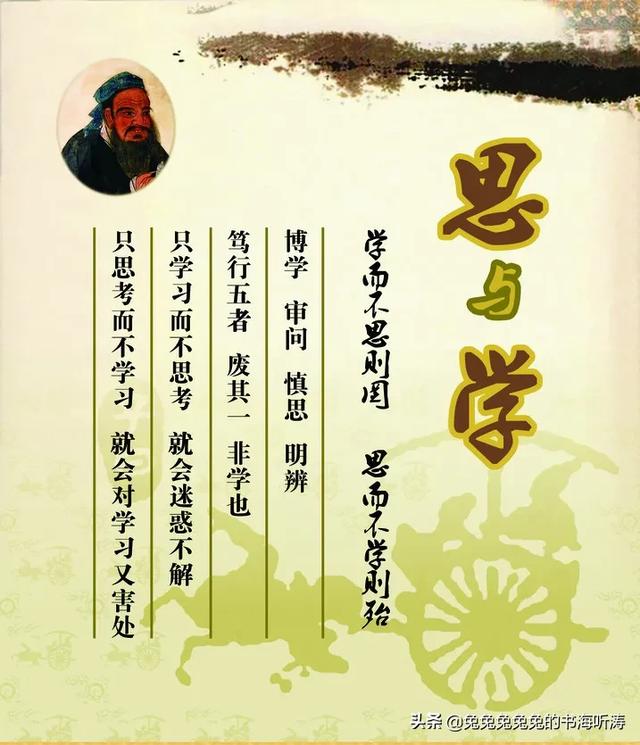 思与学
学而不思则罔 思而不学则殆
博学 审问 慎思 明辨
笃行五者 废其一 非学也
只学习而不思考 就会迷惑不解
只思考而不学习 就会对学习又害处
头条 @兔兔兔兔兔的书海听涛